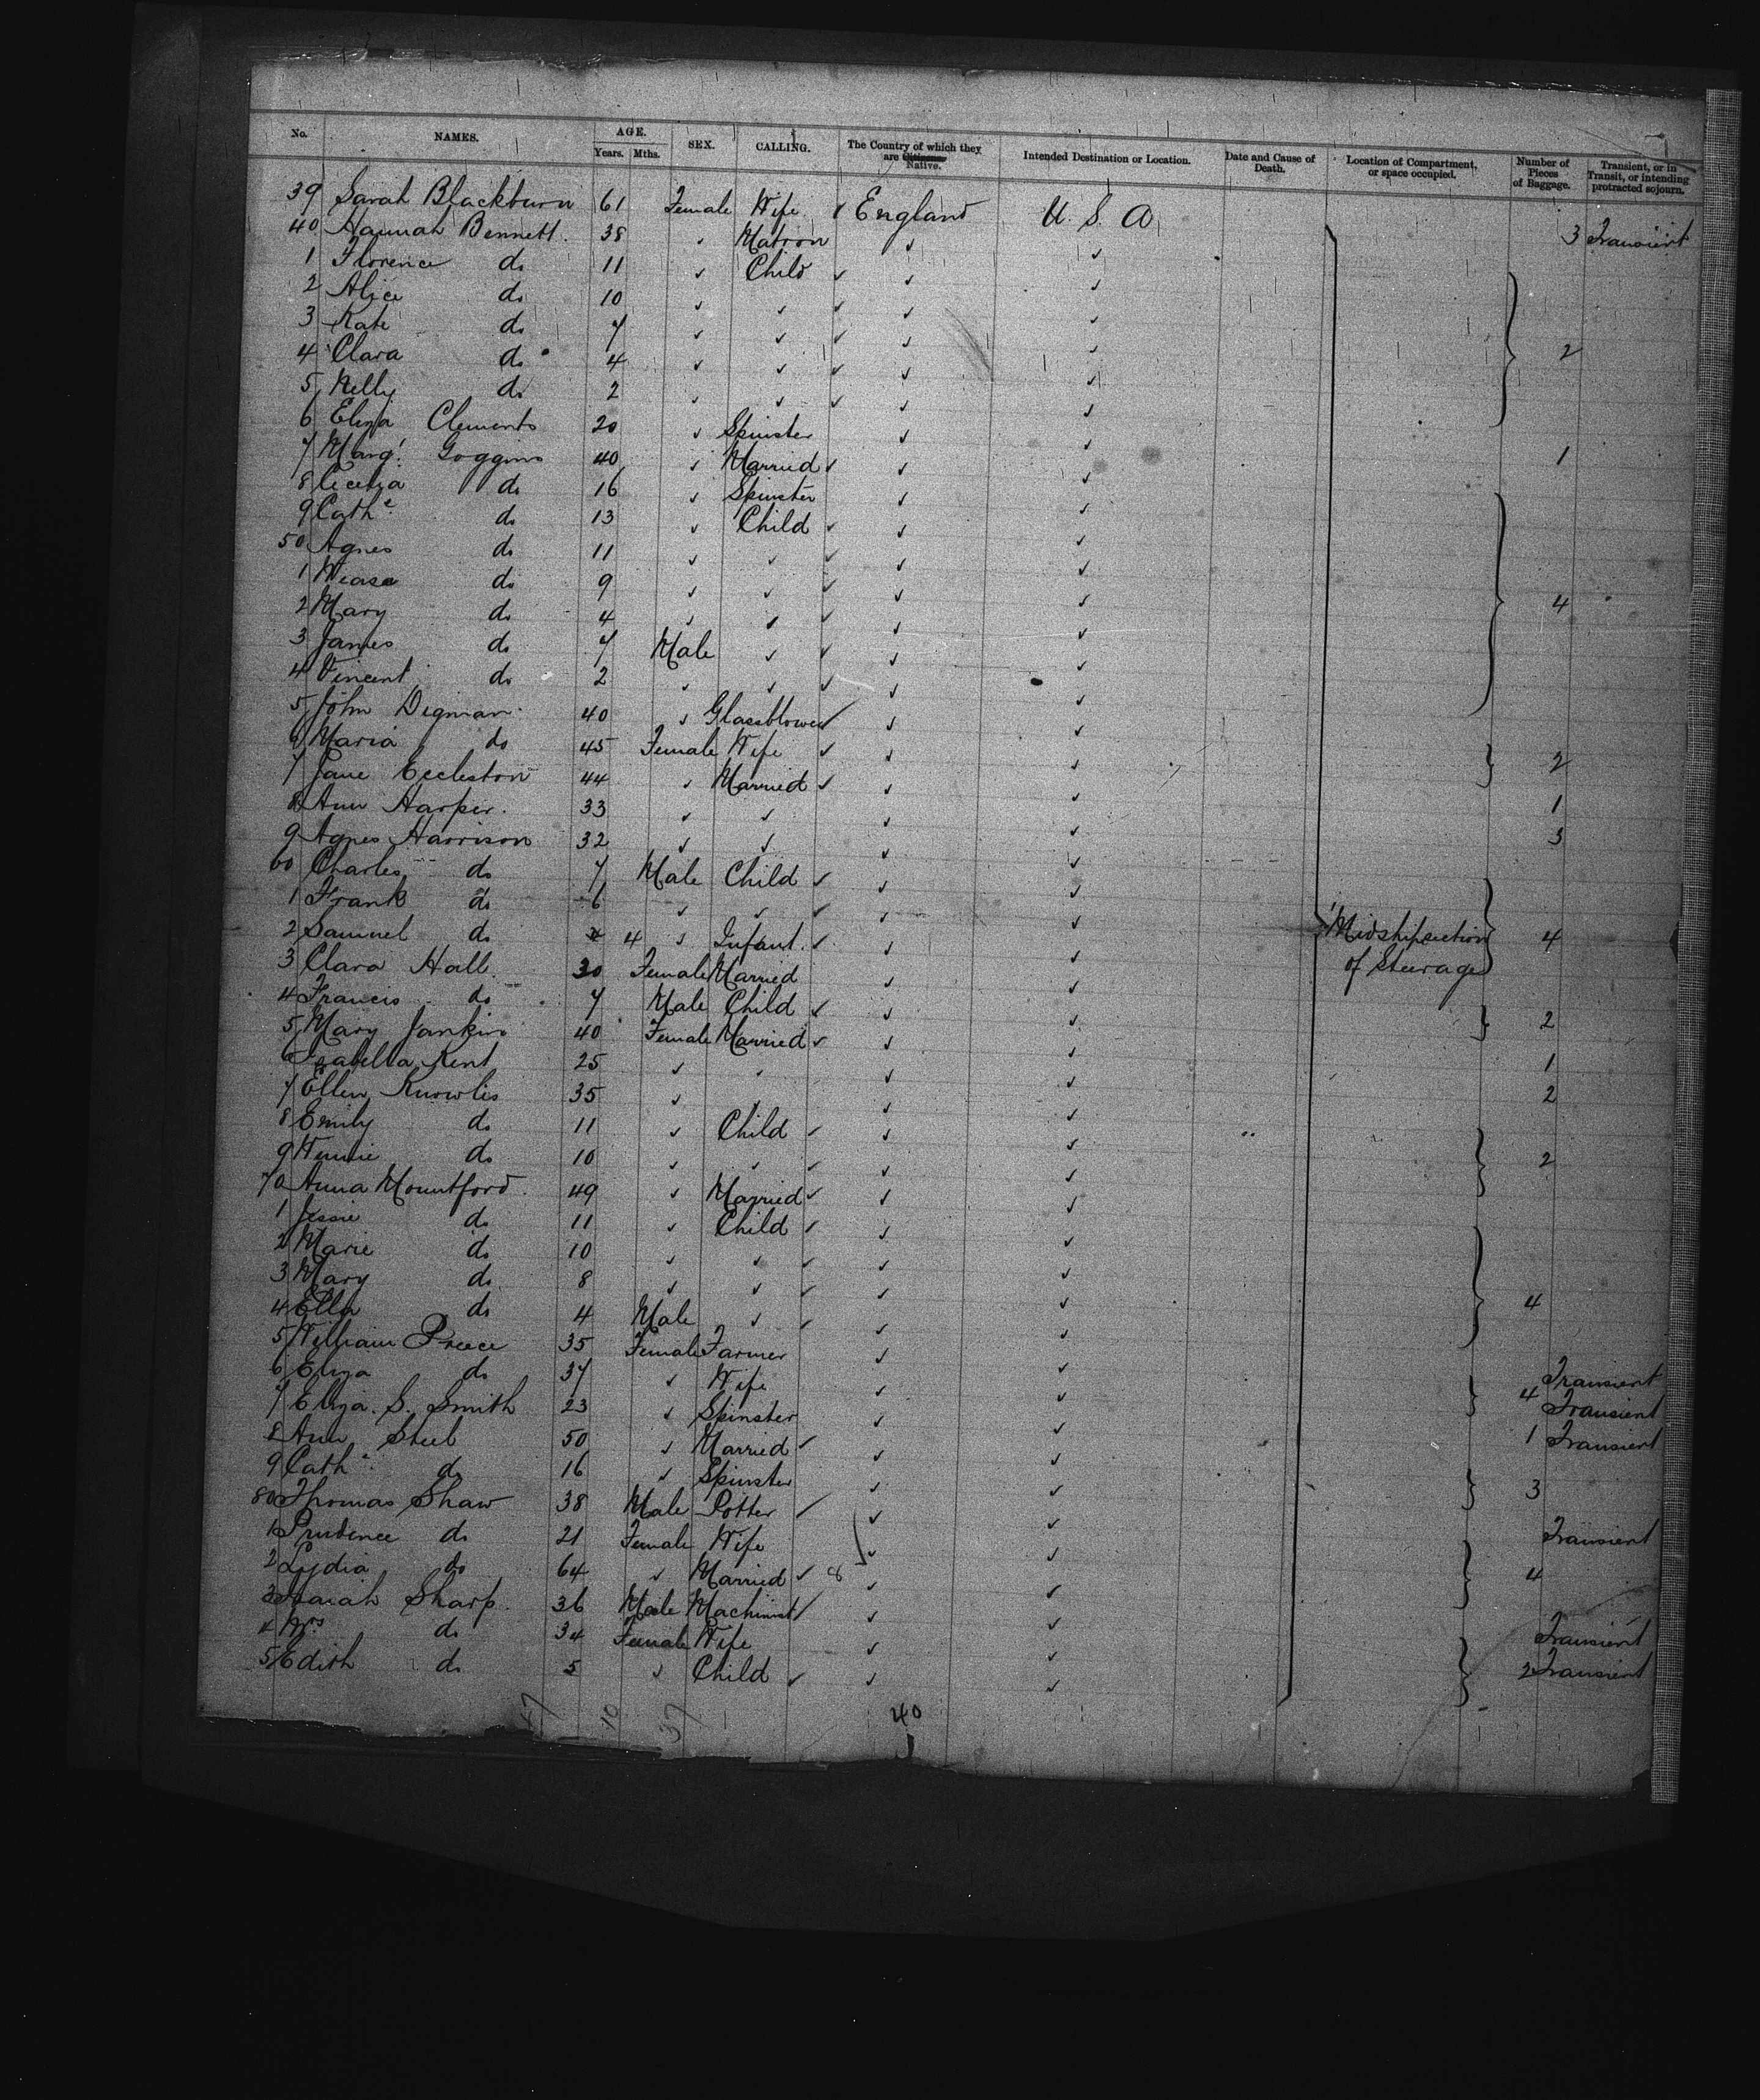 No. NAMES. AGE. Years. Mths. SEX. CALLING. The Country of which they are Citizens Native. Intended Destination or Location. Date and Cause of Death. Location of Compartment, or space occupied. Number of Pieces of Baggage. Transient, or in Transit, or intending protracted sojourn.
39 Sarah Blackburn 61 Female Wife England U. S. A 3 Transient
40 Hannah Bennett. 38 ✓ Matron ✓ ✓
1 Florence do 11 ✓ Child ✓ ✓ ✓
2 Alice do 10 ✓ ✓ ✓ ✓ ✓
3 Kate do 7 ✓ ✓ ✓ ✓ ✓ 2
4 Clara do 4 ✓ ✓ ✓ ✓ ✓
5 Nelly do 2 ✓ ✓ ✓ ✓ ✓
6 Eliza Clements 20 ✓ Spinster ✓ ✓ 1
7 Margt. Goggins 40 ✓ Married ✓ ✓ ✓
8 Cecelia do 16 ✓ Spinster ✓ ✓
9 Cathe. do 13 ✓ Child ✓ ✓ ✓
50 Agnes do 11 ✓ ✓ ✓ ✓ ✓
1 do 9 ✓ ✓ ✓ ✓ ✓ 4
2 Mary do 4 ✓ ✓ ✓ ✓ ✓
3 James do 7 Male ✓ ✓ ✓ ✓
4 Vincent do 2 ✓ ✓ ✓ ✓ ✓
5 John Digman 40 ✓ Glassblower ✓ ✓ ✓
6 Maria do 45 Female Wife ✓ ✓ ✓ 2
7 Jane Eccleston 44 ✓ Married ✓ ✓ ✓ 1
8 Ann Harper. 33 ✓ ✓ ✓ ✓ 3
9 Agnes Harrison 32 ✓ ✓ ✓ ✓
60 Charles do 7 Male Child ✓ ✓ ✓
1 Frank do 6 ✓ ✓ ✓ ✓ ✓ Midshipsection
2 Samuel do 4 ✓ Infant. ✓ ✓ ✓ of Steerage 4
3 Clara Hall. 30 Female Married ✓ ✓
4 Francis do 7 Male Child ✓ ✓ ✓ 2
5 Mary Jankins 40 Female Married ✓ ✓ ✓ 1
6 Isabella Kent 25 ✓ ✓ ✓ ✓ 2
7 Ellen Knowles 35 ✓ ✓ ✓ ✓
8 Emily do 11 ✓ Child ✓ ✓ ✓ 2
9 do 10 ✓ ✓ ✓ ✓ ✓
70 Anna Mountford. 49 ✓ Married ✓ ✓ ✓
1 Jessie do 11 ✓ Child ✓ ✓ ✓
2 Marie do 10 ✓ ✓ ✓ ✓ ✓
3 Mary do 8 ✓ ✓ ✓ ✓ ✓ 4
4 Ella do 4 Male ✓ ✓ ✓ ✓
5 William Preece 35 Female Farmer ✓ ✓ Transient
6 Eliza do 37 ✓ Wife ✓ ✓ 4 Transient
7 Eliza. S. Smith 23 ✓ Spinster ✓ ✓ 1 Transient
8 Ann Steel 50 ✓ Married ✓ ✓ ✓
9 Cathe. do 16 ✓ Spinster ✓ ✓ 3
80 Thomas Shaw 38 Male Potter ✓ ✓ ✓ Transient
1 Prudence do 21 Female Wife ✓ ✓ 4
2 Lydia do 64 ✓ Married ✓ 8 ✓ ✓
3 Isaiah Sharp. 36 Male Machinist ✓ ✓ ✓ Transient
4 Mrs do 34 Female Wife ✓ ✓ 2 Transient
5 Edith do 5 ✓ Child ✓ ✓ ✓
10 37 40